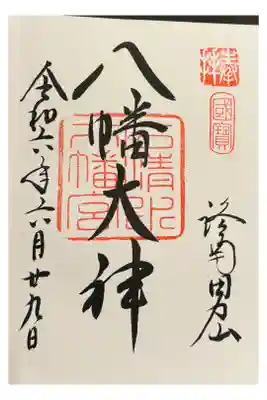 奉拝
國寶
洛南男山
八幡大神
石清水
八幡宮
令和六年六月廿九日